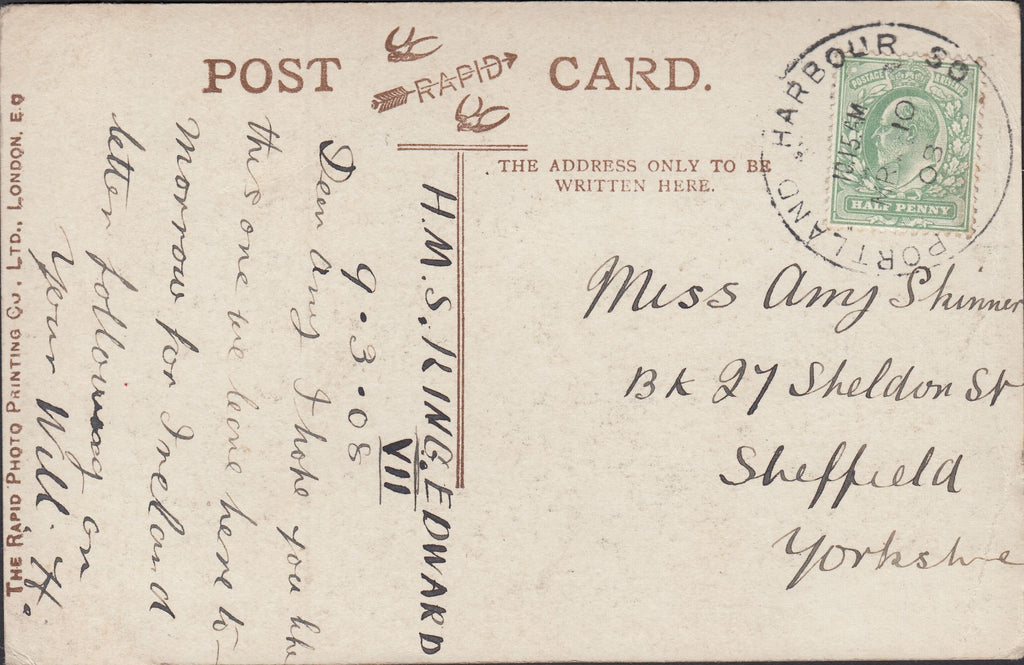 POST CARD.
RAPID
THE ADDRESS ONLY TO BE
WRITTEN HERE.
PORTLAND HARBOUR SO
10.15 AM
MR 10
08
POSTAGE REVENUE
HALF PENNY
H.M.S. KING. EDWARD
VII
9.3.08
Dear Amy I hope you like
this one we leave here to-
morrow for Ireland
letter following on
Your Will. H.
Miss Amy Skinner
Bk 27 Sheldon St
Sheffield
Yorkshire
THE RAPID PHOTO PRINTING CO., LTD., LONDON, E.C